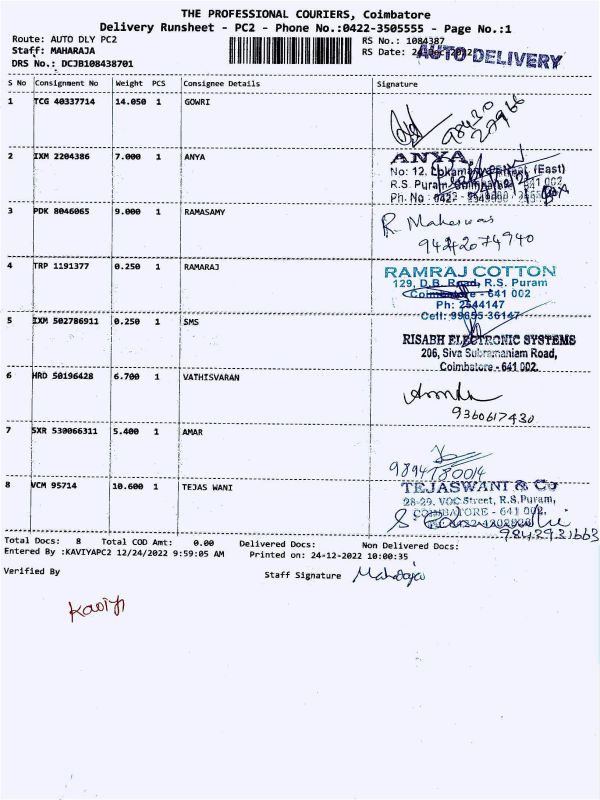 THE PROFESSIONAL COURIERS, Coimbatore
Delivery Runsheet - PC2 - Phone No.:0422-3505555 - Page No.:1
Route: AUTO DLY PC2
Staff: MAHARAJA
DRS No.: DCJB108438701
RS No.: 1084387
RS Date: 24-Dec-2022
AUTO DELIVERY
S No Consignment No Weight PCS Consignee Details Signature
1 TCG 40337714 14.050 1 GOWRI
98430
27966
2 IXM 2204386 7.000 1 ANYA
ANYA,
No: 12, (East)
R.S. Puram, 641 002
Ph. No
3 PDK 8046065 9.000 1 RAMASAMY
R. Maheswas
9442074940
4 TRP 1191377 0.250 1 RAMARAJ
RAMRAJ COTTON
129, D.B. Road, R.S. Puram
Coimbatore - 641 002
Ph: 2544147
Cell: 99655-36147
5 IXM 502786911 0.250 1 SMS
RISABH ELECTRONIC SYSTEMS
206, Siva Subramaniam Road,
Coimbatore - 641 002.
6 HRD 50196428 6.700 1 VATHISVARAN
9360617430
7 SXR 530066311 5.400 1 AMAR
9894780014
8 VCM 95714 10.600 1 TEJAS WANI
TEJASWANI & Co
28-29, VOC Street, R.S.Puram,
COIMBATORE - 641 002,
9842931663
Total Docs: 8 Total COD Amt: 0.00 Delivered Docs: Non Delivered Docs:
Entered By :KAVIYAPC2 12/24/2022 9:59:05 AM Printed on: 24-12-2022 10:00:35
Verified By
Staff Signature Maharaja
Kaviya